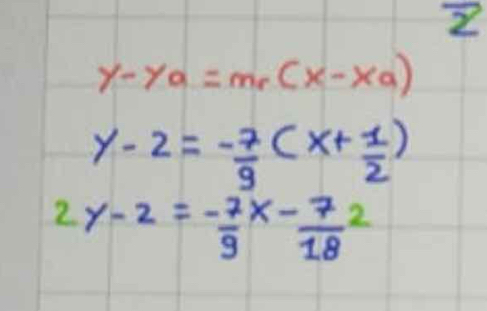 2
y-ya = mr (x-xa)
y-2 = -7/9 (x+1/2)
2 y-2 = -7/9 x - 7/18 2